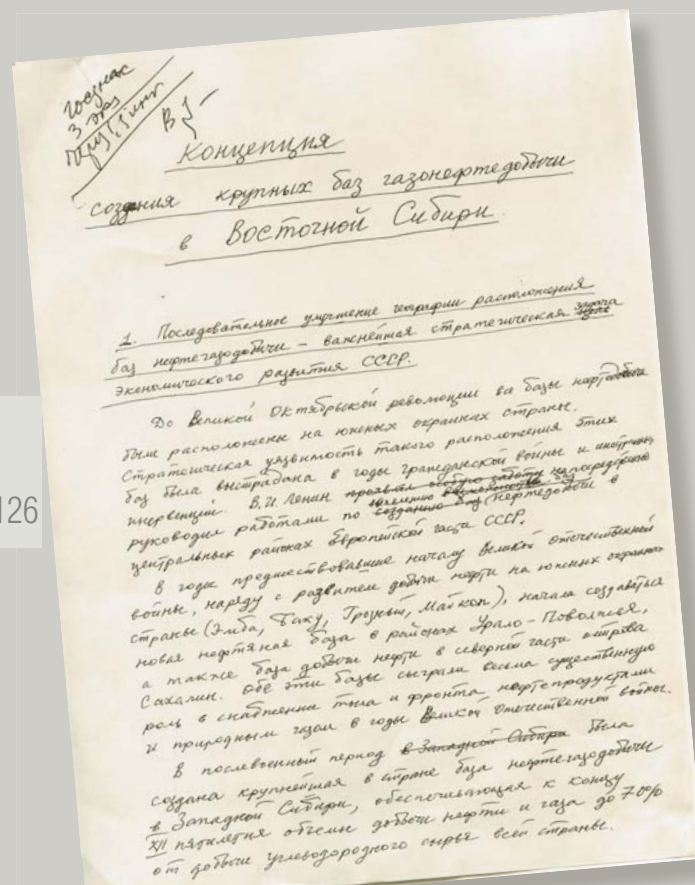 3 экз
В 1-
Концепция
создания крупных баз газонефтедобычи
в Восточной Сибири.
1. Последовательное улучшение географии расположения
баз нефтегазодобычи – важнейшая стратегическая задача
экономического развития СССР.
До Великой Октябрьской революции все базы нефтедобычи
были расположены на южных окраинах страны.
Стратегическая уязвимость такого расположения этих
баз была выстрадана в годы гражданской войны и иностранн.
интервенции. В.И. Ленин непосредственно
руководил работами по созданию баз нефтедобычи в
центральных районах Европейской части СССР.
В годы предшествовавшие началу Великой отечественной
войны, наряду с развитием добычи нефти на южных окраинах
страны (Эмба, Баку, Грозный, Майкоп), начала создаваться
новая нефтяная база в районах Урало-Поволжья,
а также база добычи нефти в северной части острова
Сахалин. Обе эти базы сыграли весьма существенную
роль в снабжении тыла и фронта нефтепродуктами
и природным газом в годы Великой Отечественной войны.
В послевоенный период в Западной Сибири была
создана крупнейшая в стране база нефтегазодобычи
в Западной Сибири, обеспечивающая к концу
XII пятилетия объемы добычи нефти и газа до 70%
от добычи углеводородного сырья всей страны.
126